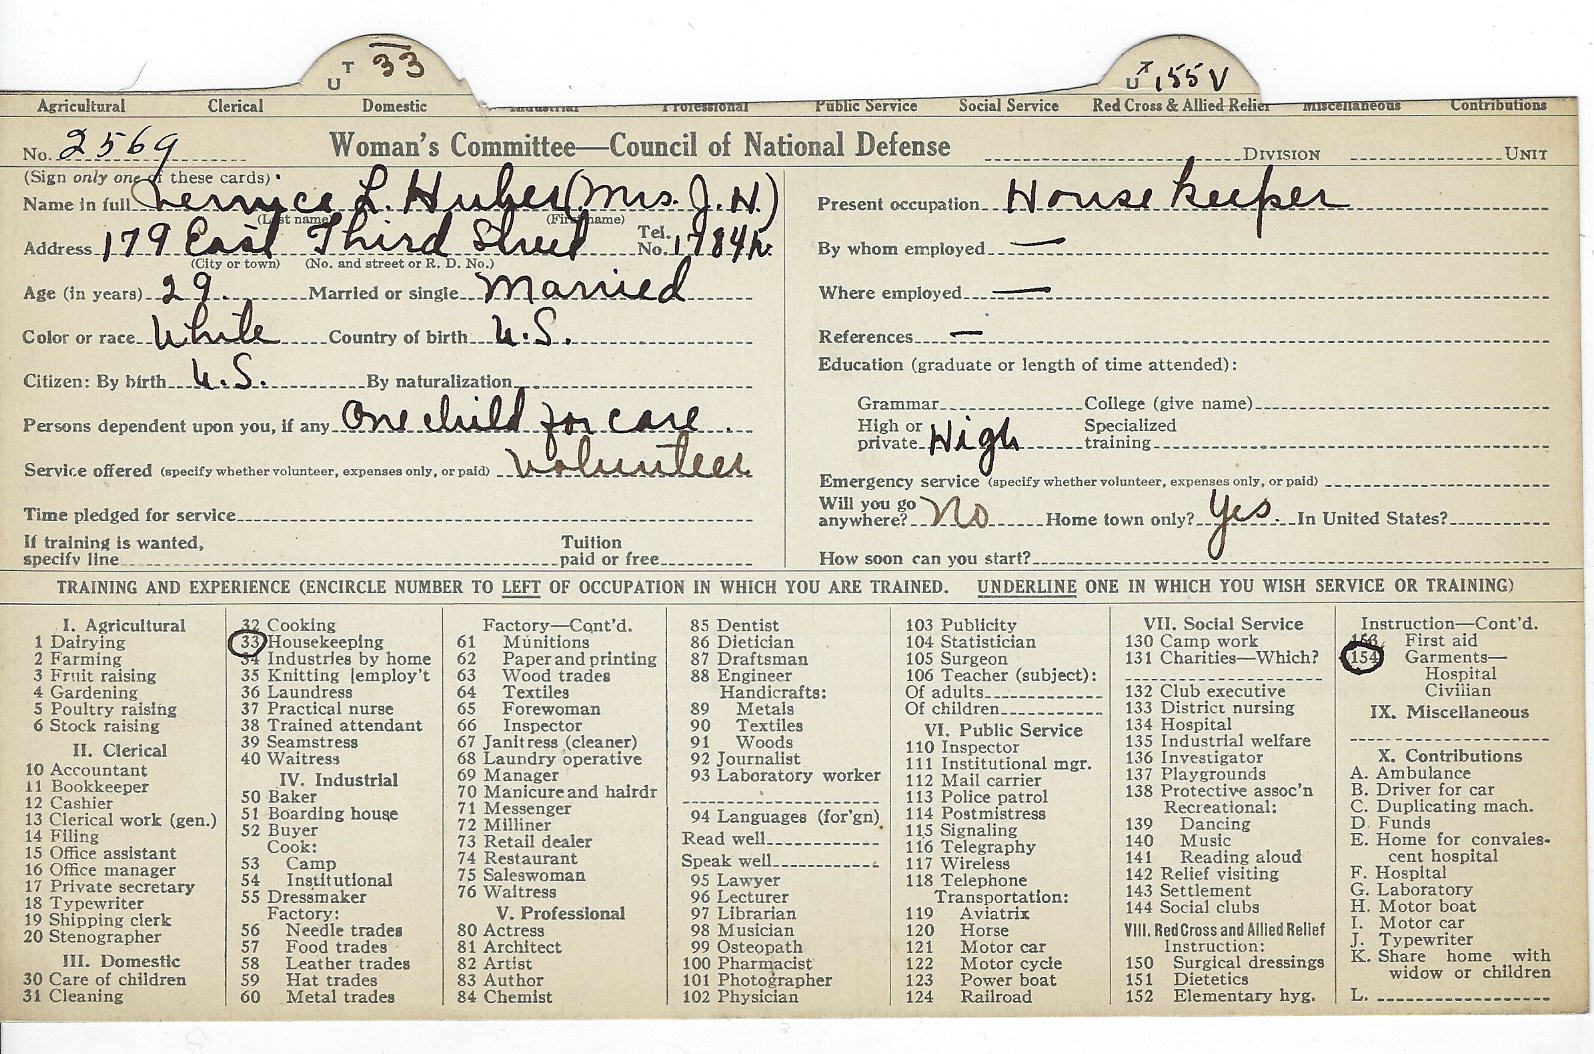 UT 33
UT 155 V
Agricultural Clerical Domestic Industrial Professional Public Service Social Service Red Cross & Allied Relief Miscellaneous Contributions
No. 2569 Woman's Committee—Council of National Defense DIVISION UNIT
(Sign only one of these cards)
Name in full L. Huber (Mrs. J. H.)
(Last name) (First name)
Address 179 East Third Street Tel. No. 1784
(City or town) (No. and street or R. D. No.)
Age (in years) 29. Married or single Married
Color or race White Country of birth U.S.
Citizen: By birth U.S. By naturalization
Persons dependent upon you, if any One child for care.
Service offered (specify whether volunteer, expenses only, or paid) Volunteer
Time pledged for service
If training is wanted, specify line Tuition paid or free
Present occupation House keeper
By whom employed —
Where employed —
References —
Education (graduate or length of time attended):
Grammar College (give name)
High or private High Specialized training
Emergency service (specify whether volunteer, expenses only, or paid)
Will you go anywhere? No Home town only? Yes. In United States?
How soon can you start?
TRAINING AND EXPERIENCE (ENCIRCLE NUMBER TO LEFT OF OCCUPATION IN WHICH YOU ARE TRAINED. UNDERLINE ONE IN WHICH YOU WISH SERVICE OR TRAINING)
I. Agricultural
1 Dairying
2 Farming
3 Fruit raising
4 Gardening
5 Poultry raising
6 Stock raising
II. Clerical
10 Accountant
11 Bookkeeper
12 Cashier
13 Clerical work (gen.)
14 Filing
15 Office assistant
16 Office manager
17 Private secretary
18 Typewriter
19 Shipping clerk
20 Stenographer
III. Domestic
30 Care of children
31 Cleaning
32 Cooking
33 Housekeeping
34 Industries by home
35 Knitting [employ't
36 Laundress
37 Practical nurse
38 Trained attendant
39 Seamstress
40 Waitress
IV. Industrial
50 Baker
51 Boarding house
52 Buyer
Cook:
53 Camp
54 Institutional
55 Dressmaker
Factory:
56 Needle trades
57 Food trades
58 Leather trades
59 Hat trades
60 Metal trades
Factory—Cont'd.
61 Munitions
62 Paper and printing
63 Wood trades
64 Textiles
65 Forewoman
66 Inspector
67 Janitress (cleaner)
68 Laundry operative
69 Manager
70 Manicure and hairdr
71 Messenger
72 Milliner
73 Retail dealer
74 Restaurant
75 Saleswoman
76 Waitress
V. Professional
80 Actress
81 Architect
82 Artist
83 Author
84 Chemist
85 Dentist
86 Dietician
87 Draftsman
88 Engineer
Handicrafts:
89 Metals
90 Textiles
91 Woods
92 Journalist
93 Laboratory worker
94 Languages (for'gn)
Read well
Speak well
95 Lawyer
96 Lecturer
97 Librarian
98 Musician
99 Osteopath
100 Pharmacist
101 Photographer
102 Physician
103 Publicity
104 Statistician
105 Surgeon
106 Teacher (subject):
Of adults
Of children
VI. Public Service
110 Inspector
111 Institutional mgr.
112 Mail carrier
113 Police patrol
114 Postmistress
115 Signaling
116 Telegraphy
117 Wireless
118 Telephone
Transportation:
119 Aviatrix
120 Horse
121 Motor car
122 Motor cycle
123 Power boat
124 Railroad
VII. Social Service
130 Camp work
131 Charities—Which?
132 Club executive
133 District nursing
134 Hospital
135 Industrial welfare
136 Investigator
137 Playgrounds
138 Protective assoc'n
Recreational:
139 Dancing
140 Music
141 Reading aloud
142 Relief visiting
143 Settlement
144 Social clubs
VIII. Red Cross and Allied Relief
Instruction:
150 Surgical dressings
151 Dietetics
152 Elementary hyg.
Instruction—Cont'd.
153 First aid
154 Garments—
Hospital
Civilian
IX. Miscellaneous
X. Contributions
A. Ambulance
B. Driver for car
C. Duplicating mach.
D. Funds
E. Home for convales-
cent hospital
F. Hospital
G. Laboratory
H. Motor boat
I. Motor car
J. Typewriter
K. Share home with
widow or children
L.